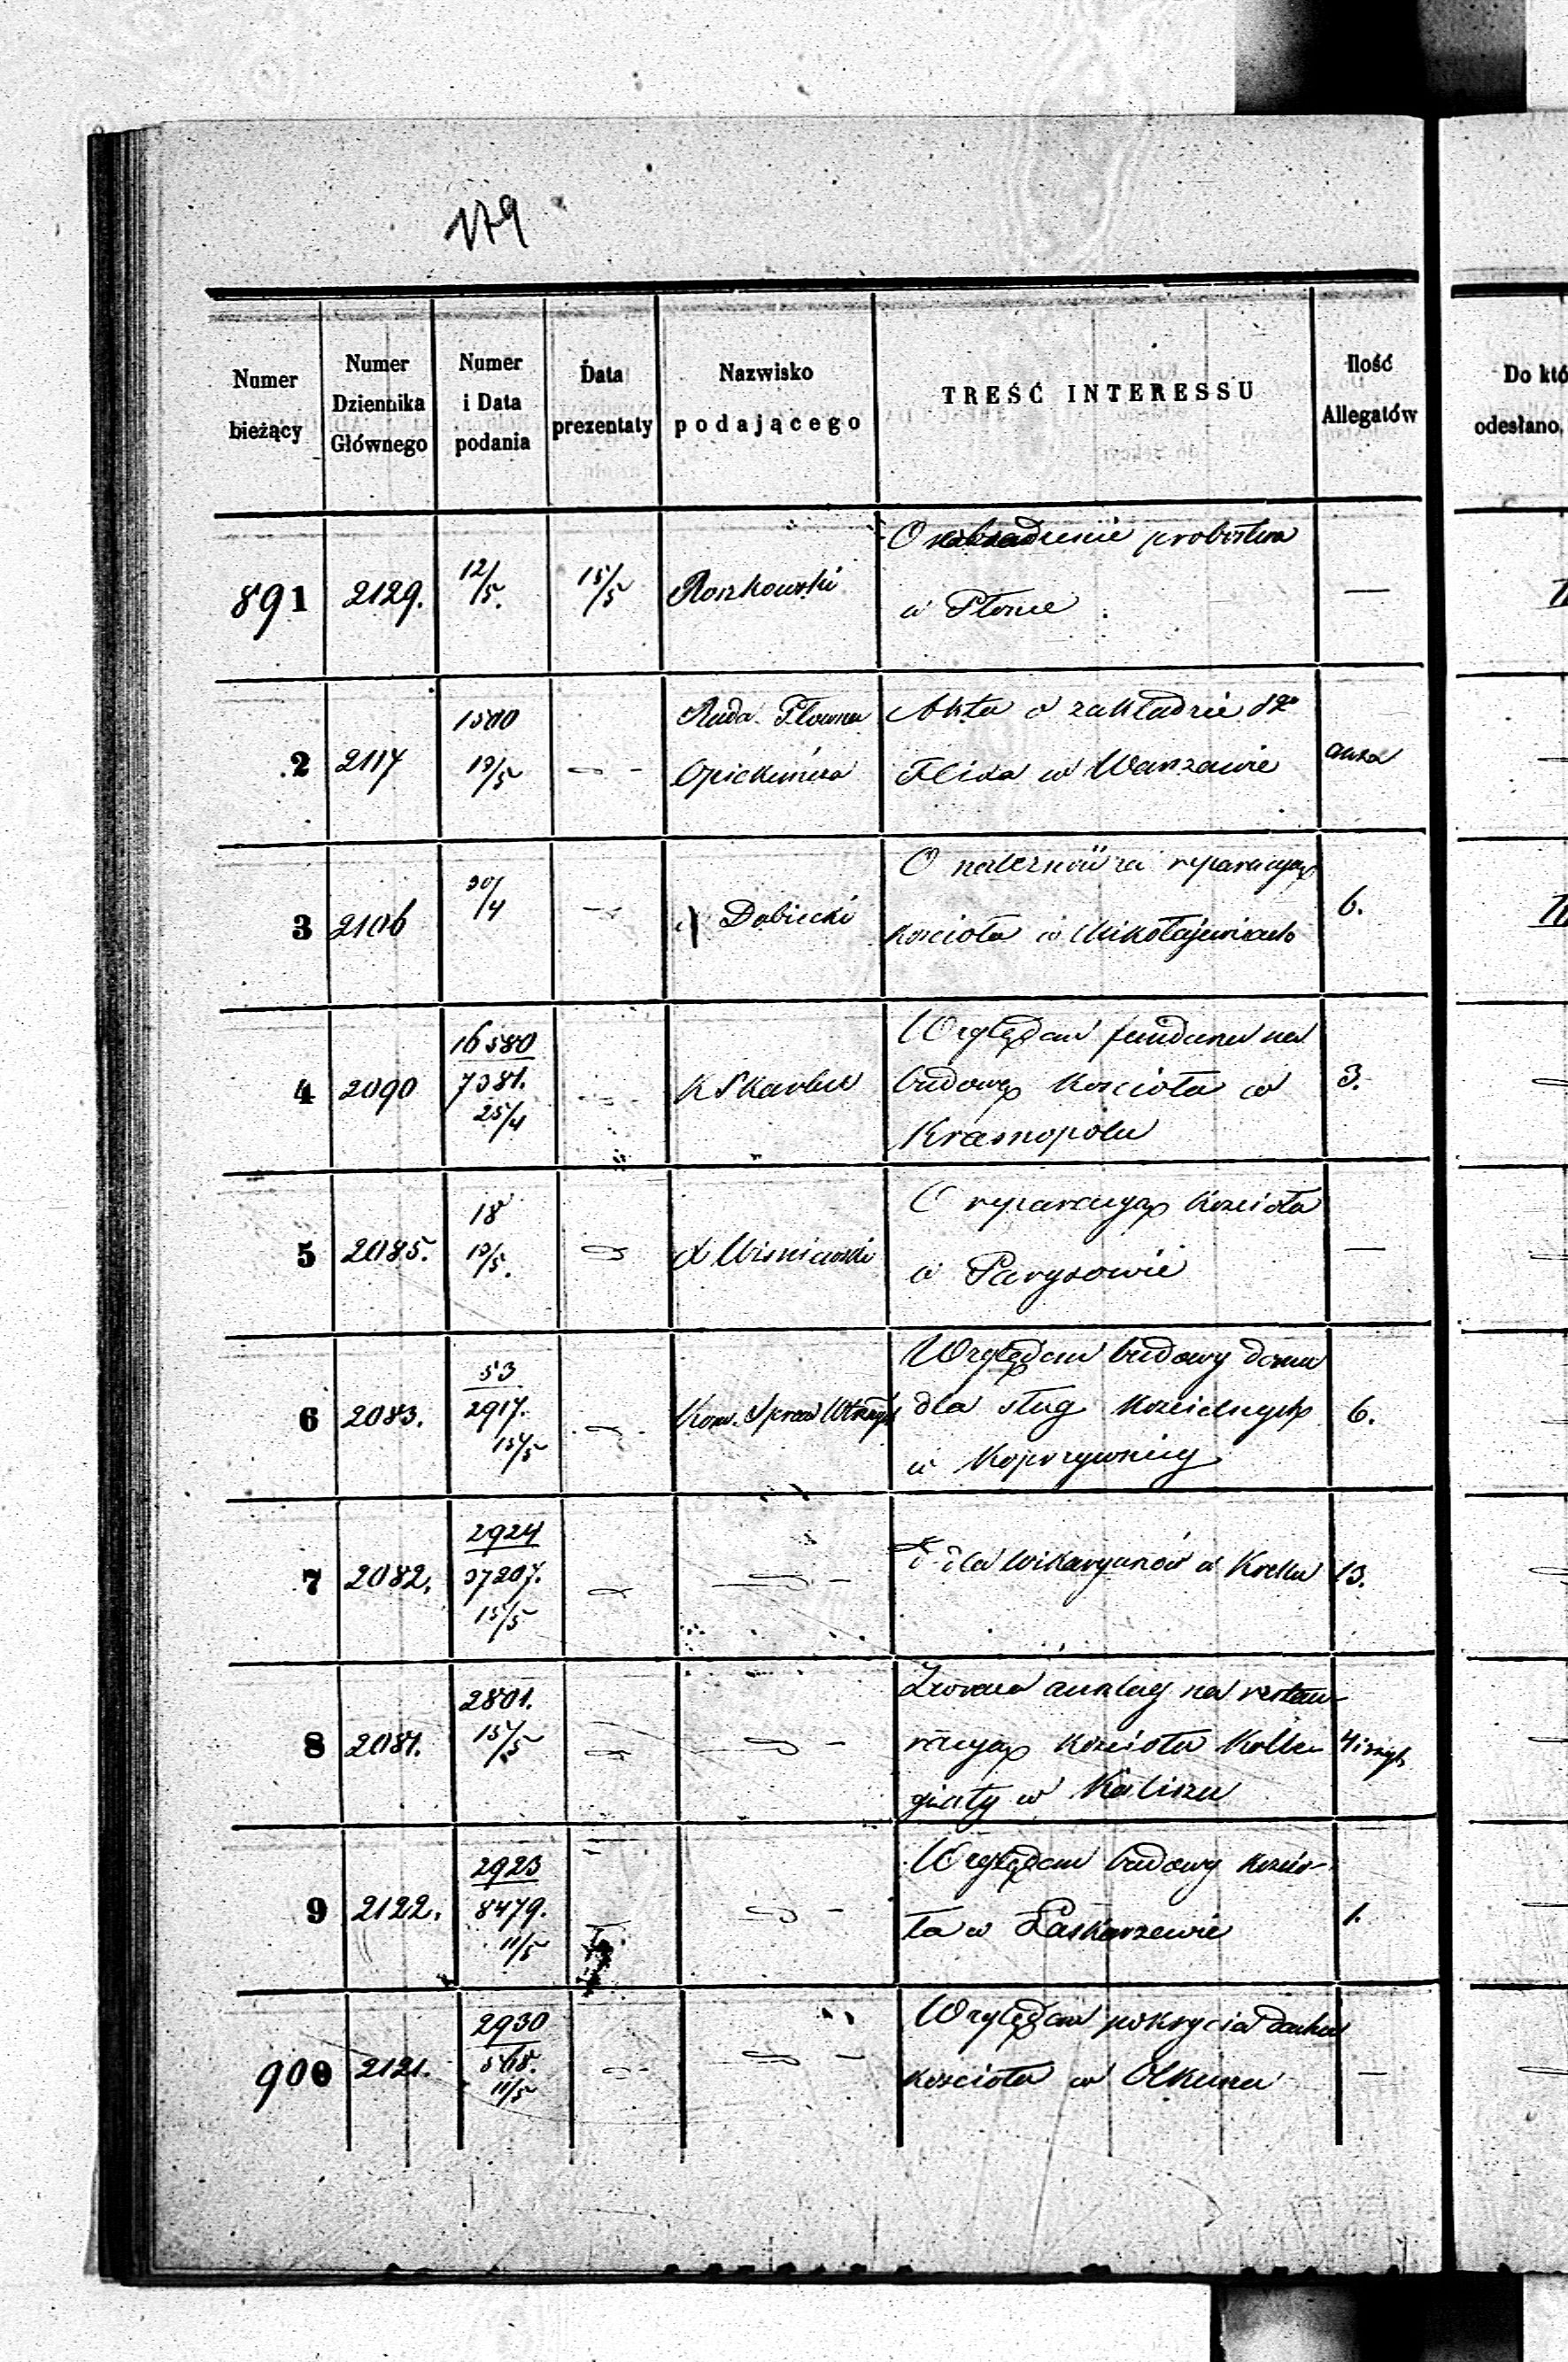 179
Numer bieżący
Numer Dziennika Głównego
Numer i Data podania
Data prezentaty
Nazwisko podającego
TREŚĆ INTERESSU
Ilość Allegatów
Do któ
odesłano,
891 2129. 12/5. 15/5 Roszkowski
O obsadzenie probostwa
w Płonce
—
2 2117 1500 10/5 Rada Główna
Opiekuńcza
Akta o zakładzie Sgo
Felixa w Warszawie
3 2106 30/4 Dabiecki
O reparacyą
kościoła w Mikołajewicach
6.
4 2090 16580
7381.
25/4
K Skarbu
Względem funduszu na
budowę kościoła w
Krasnopolu
3.
5 2085. 18
10/5.
X Wiśniewski
O reparacyą kościoła
w Parysowie
—
6 2083. 53
2917.
15/5
Kom. Spraw Wewnętr
Względem budowy domu
dla sług kościelnych
w Koprzywnicy
6.
7 2082. 2924
37207.
15/5
dla Wikaryuszów w
13.
8 2081. 2801.
15/5
Zwraca anszlag na restau-
racyą kościoła Kolle-
giaty w Kaliszu
9 2122. 2923
8479.
11/5
Względem budowy kościo-
ła w Łaskarzewie
1.
900 2121. 2930
568.
11/5
Względem pokrycia dachu
kościoła w Olkuszu
—